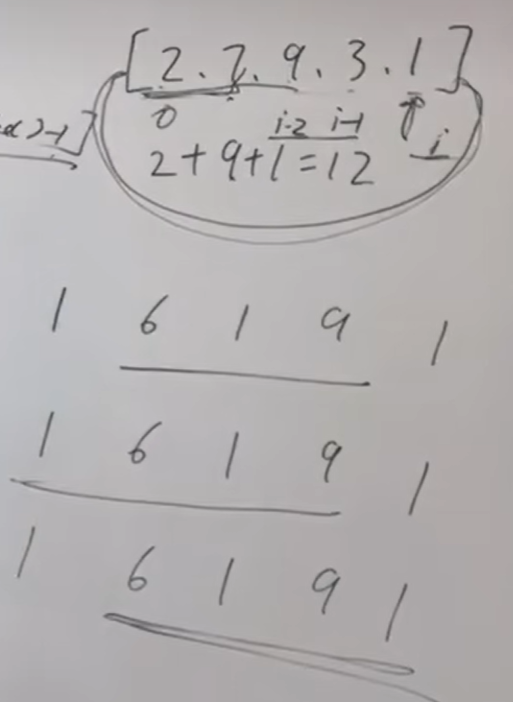 [2.7.9.3.1]
0 i-2 i-1 i
2+9+1=12
1 6 1 9 1
1 6 1 9 1
1 6 1 9 1